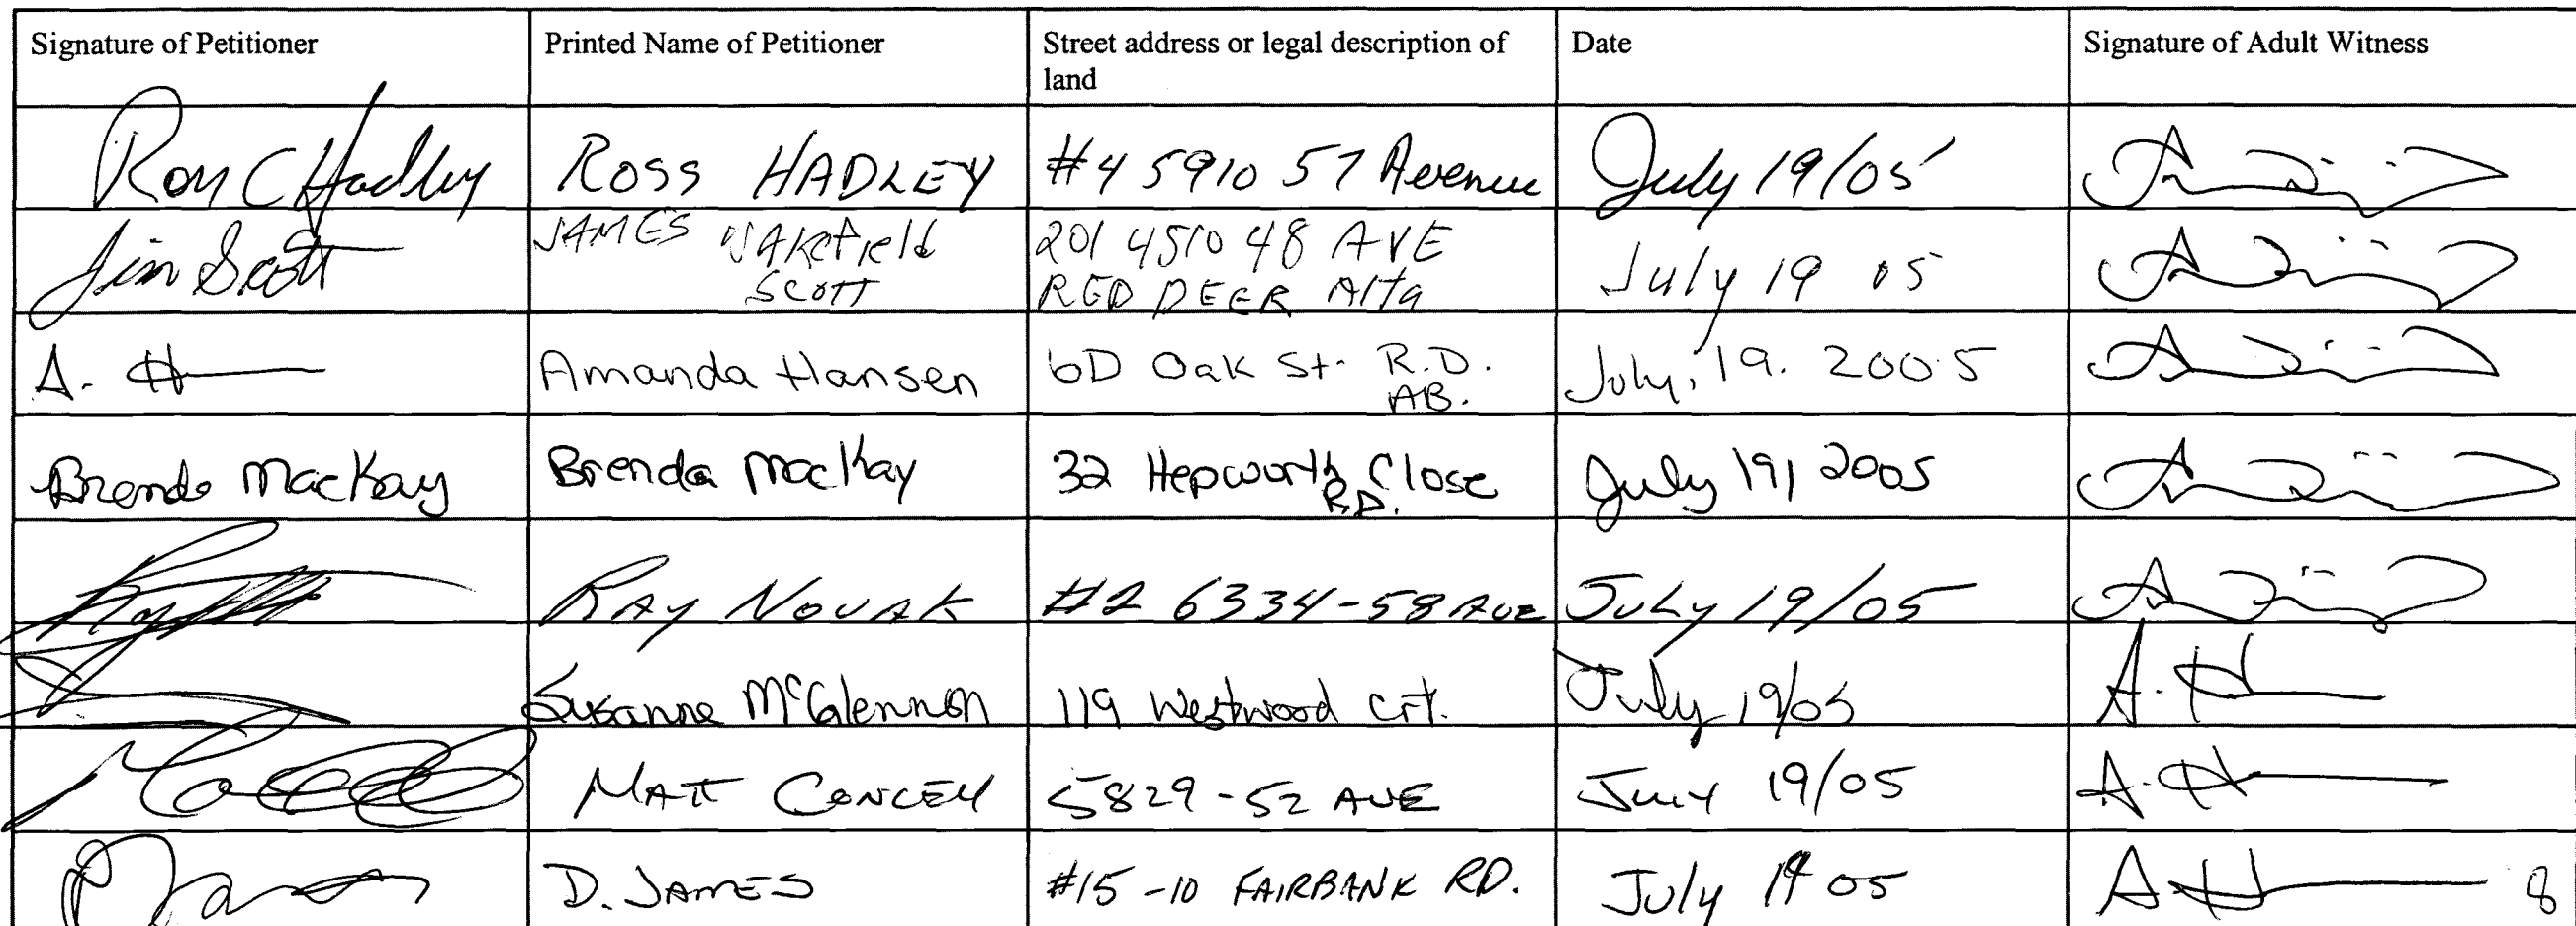 Signature of Petitioner Printed Name of Petitioner Street address or legal description of land Date Signature of Adult Witness
Hadley ROSS HADLEY #4 5910 57 Avenue July 19/05
Jim Scott JAMES WAKefield SCOTT 201 4510 48 AVE RED DEER Alta July 19 05
A. H Amanda Hansen 6D Oak St. R.D. AB. July, 19. 2005
Brenda MacKay Brenda MacKay 32 Hepworth Close R.D. July 19, 2005
RAY NOVAK #2 6334-58 AVE July 19/05
Suzanne McGlennon 119 Westwood Crt. July 19/05 A. H
MATT 5829-52 AVE July 19/05 A. H
D. JAMES #15-10 FAIRBANK RD. July 19 05 A H 8